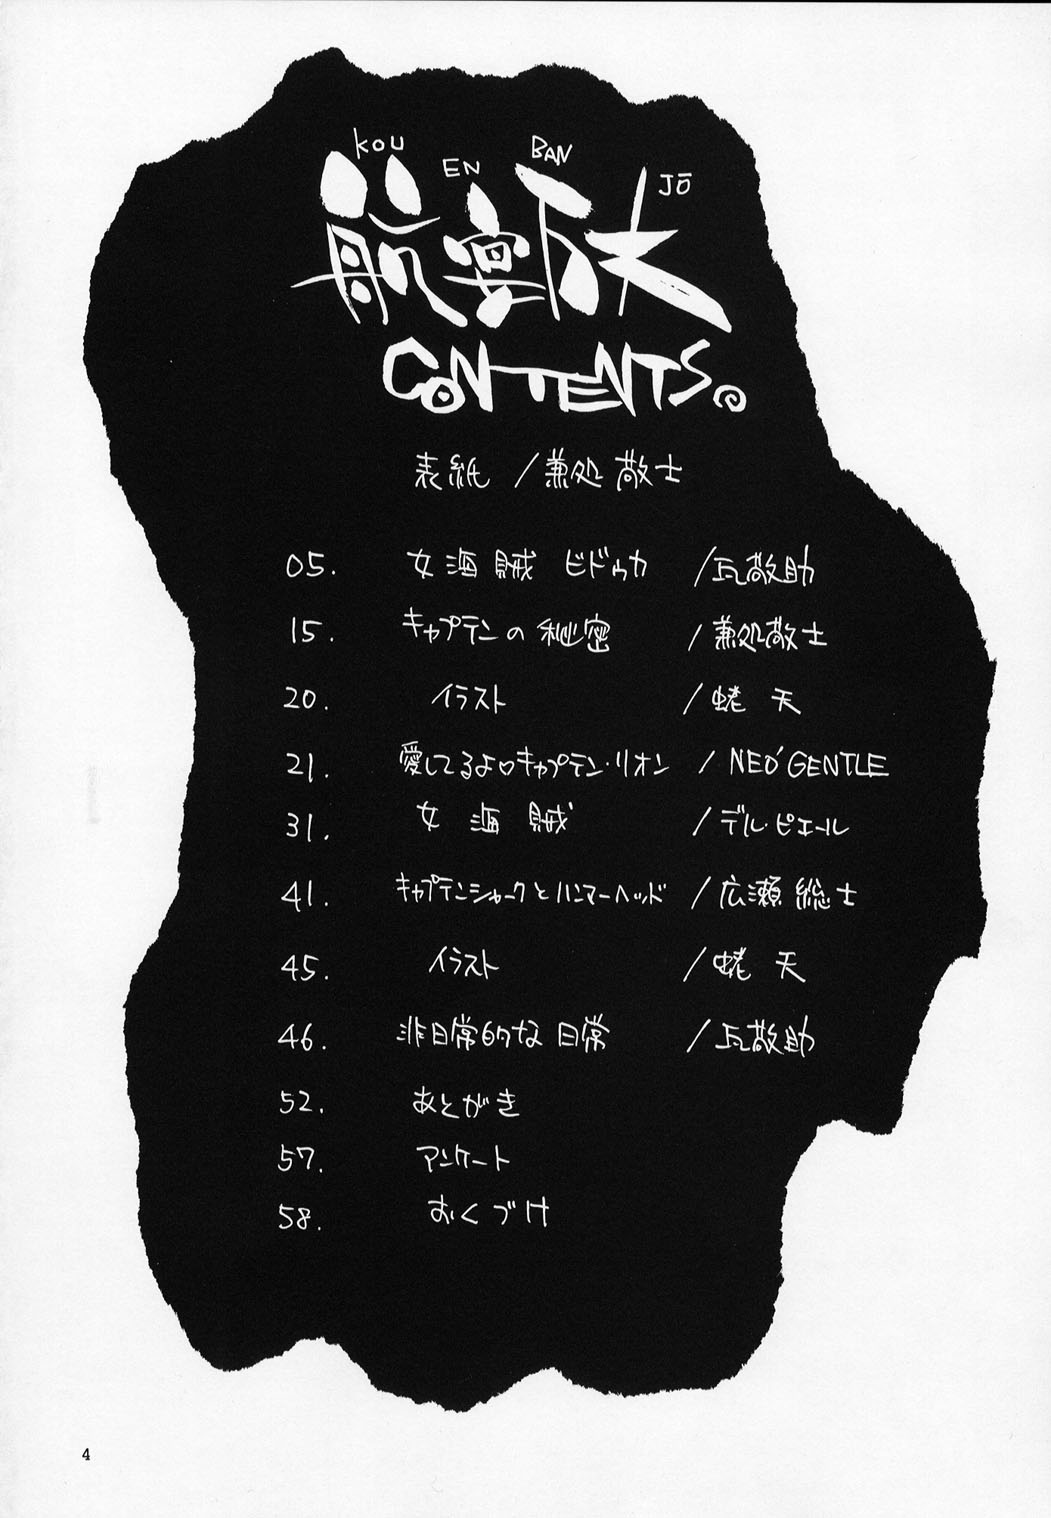 KOU EN BAN JŌ
航宴万丈
CONTENTS。
表紙 /兼処敬士
05. 女海賊 ビドゥカ /瓦敬助
15. キャプテンの秘密 /兼処敬士
20. イラスト /蛯天
21. 愛してるよ♡キャプテン・リオン /NEO'GENTLE
31. 女海賊 /デル・ピエール
41. キャプテンシャークとハンマーヘッド /広瀬総士
45. イラスト /蛯天
46. 非日常的な日常 /瓦敬助
52. あとがき
57. アンケート
58. おくづけ
4